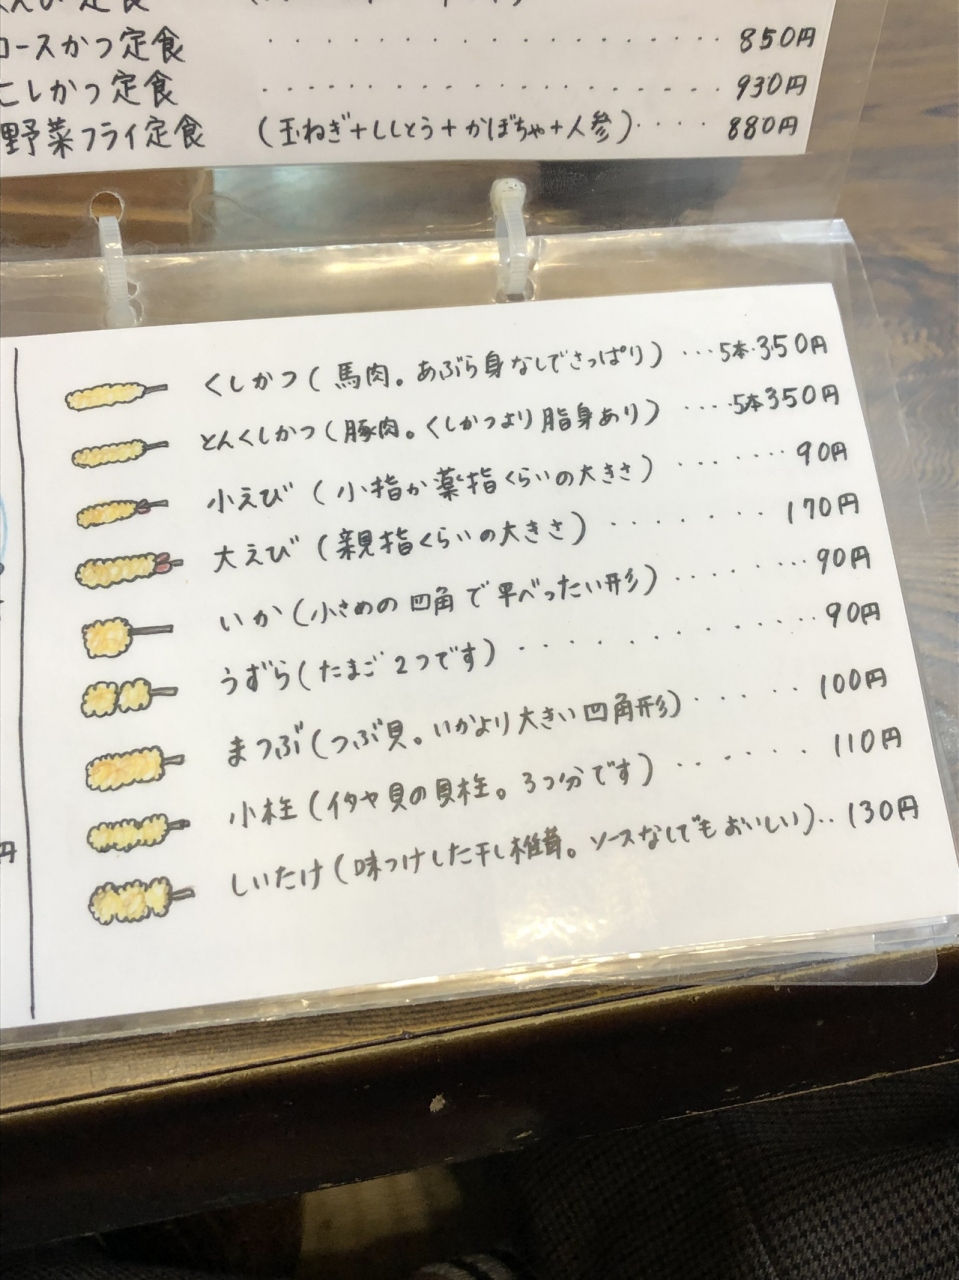 定食
ロースかつ定食 ‥‥‥‥‥‥‥‥ 850円
こしかつ定食 ‥‥‥‥‥‥‥‥ 930円
野菜フライ定食 (玉ねぎ+ししとう+かぼちゃ+人参)‥‥ 880円
くしかつ(馬肉。あぶら身なしでさっぱり)…5本・350円
とんくしかつ(豚肉。くしかつより脂身あり)…・5本350円
小えび(小指か薬指くらいの大きさ)‥‥‥‥ 90円
大えび(親指くらいの大きさ)‥‥‥‥ 170円
いか(小さめの四角で平べったい形)‥‥‥‥ 90円
うずら(たまご2つです)‥‥‥‥‥‥ 90円
まつぶ(つぶ貝。いかより大きい四角形)‥‥‥ 100円
小柱(イタヤ貝の貝柱。3つ分です)‥‥‥ 110円
しいたけ(味つけした干し椎茸。ソースなしでもおいしい)‥130円
円